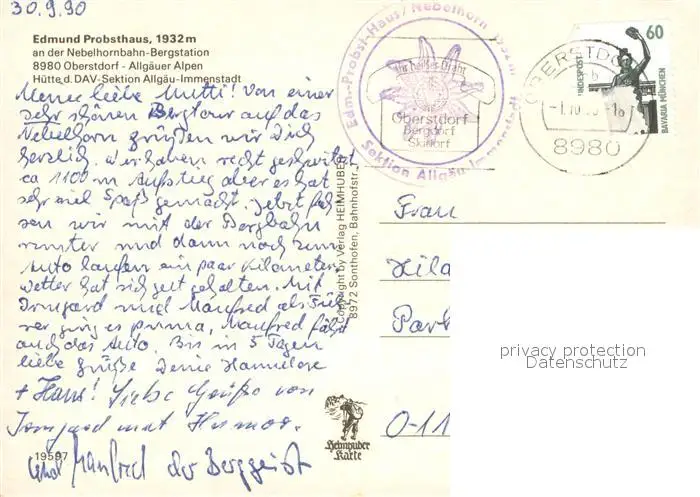 30.9.90
Edmund Probsthaus, 1932 m
an der Nebelhornbahn-Bergstation
8980 Oberstdorf - Allgäuer Alpen
Hütte d. DAV-Sektion Allgäu-Immenstadt
Meine liebe Mutti! Von einer
sehr schönen Bergtour auf das
Nebelhorn grüßen wir Dich
herzlich. Wir haben recht geschwitzt
ca 1100 m Aufstieg aber es hat
sehr viel Spaß gemacht. Jetzt fah
ren wir mit der Bergbahn
runter und dann noch zum
Auto laufen ein paar Kilometer.
Wetter hat sich gut gehalten. Mit
Irmgard und Manfred als Füh
rer ging es prima, Manfred fährt
auch das Auto. Bis in 5 Tagen
liebe Grüße Deine Hannelore
+ Hans! Liebe Grüße von
Irmgard und
und Manfred der Berggeist
19597
Copyright by Verlag HEIMHUBER
8972 Sonthofen, Bahnhofstr.
Heimhuber
Karte
Edm.-Probst-Haus / Nebelhorn 1932 m
Sektion Allgäu-Immenstadt
Oberstdorf
Bergdorf
Skidorf
OBERSTDO
b
-1.10.90-16
8980
60
DEUTSCHE BUNDESPOST
BAVARIA MÜNCHEN
Frau
Hila
Par
O-11
privacy protection
Datenschutz